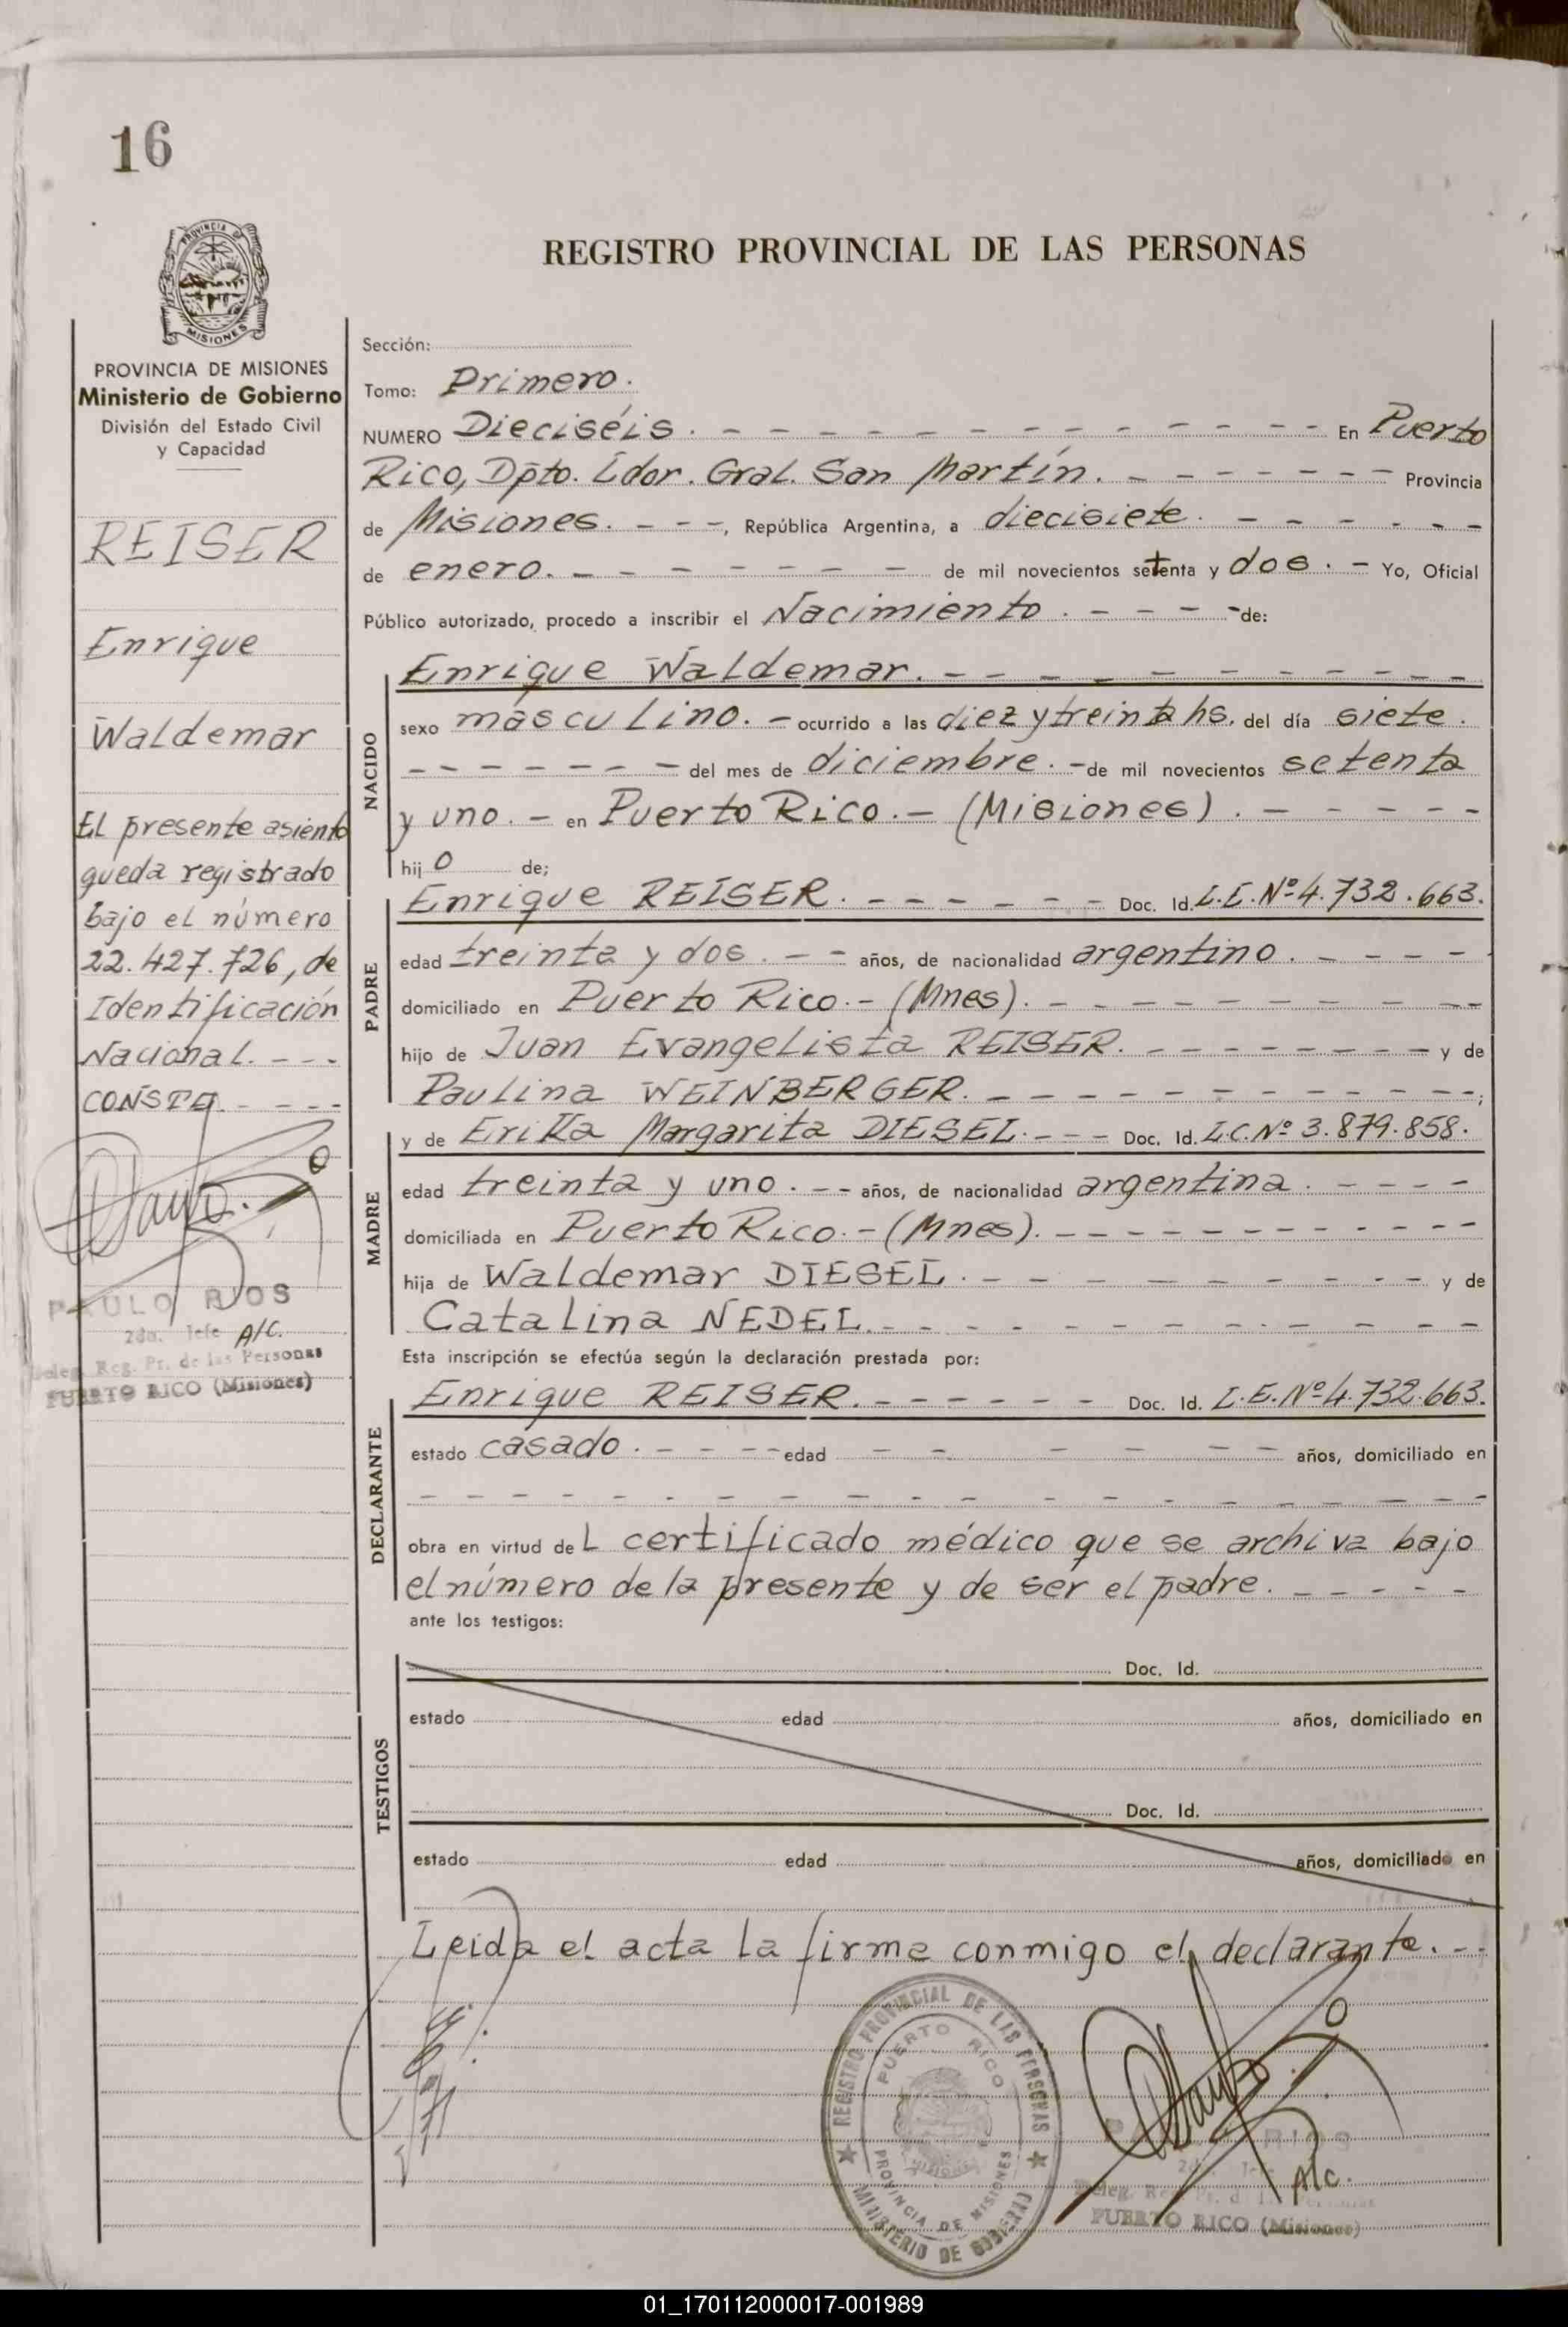 16
PROVINCIA DE
MISIONES
PROVINCIA DE MISIONES
Ministerio de Gobierno
División del Estado Civil
y Capacidad
REISER
Enrique
Waldemar
El presente asiento
queda registrado
bajo el número
22.427.726, de
Identificación
Nacional. - - -
CONSTA. - - - -
PAULO RIOS
2do. Jefe A/C.
Deleg. Reg. Pr. de las Personas
PUERTO RICO (Misiones)
REGISTRO PROVINCIAL DE LAS PERSONAS
Sección:
Tomo: Primero.
NUMERO Dieciséis. - - - - - - - - - - - - - En Puerto
Rico, Dpto. Ldor. Gral. San Martín. - - - - - - - Provincia
de Misiones. - - -, República Argentina, a diecisiete. - - - - - - -
de enero. - - - - - - - - de mil novecientos setenta y dos. - Yo, Oficial
Público autorizado, procedo a inscribir el Nacimiento. - - - - de:
NACIDO
Enrique Waldemar. - - - - - - - - - - -
sexo masculino. - ocurrido a las diez y treinta hs. del día siete.
- - - - - - - - del mes de diciembre. - de mil novecientos setenta
y uno. - en Puerto Rico. - (Misiones). - - - - - -
hijo de;
PADRE
Enrique REISER. - - - - - - Doc. Id. L.E. Nº 4.732.663.
edad treinta y dos. - - años, de nacionalidad argentino. - - - -
domiciliado en Puerto Rico. - (Mnes). - - - - - - - - - -
hijo de Juan Evangelista REISER. - - - - - - - - y de
Paulina WEINBERGER. - - - - - - - - - - -;
MADRE
y de Erika Margarita DIESEL. - - - Doc. Id. L.C. Nº 3.879.858.
edad treinta y uno. - - años, de nacionalidad argentina. - - - -
domiciliada en Puerto Rico. - (Mnes). - - - - - - - - - - -
hija de Waldemar DIESEL. - - - - - - - - - - y de
Catalina NEDEL. - - - - - - - - - - - - -
Esta inscripción se efectúa según la declaración prestada por:
DECLARANTE
Enrique REISER. - - - - - - Doc. Id. L.E. Nº 4.732.663.
estado casado. - - - - edad - - - - - - años, domiciliado en
- - - - - - - - - - - - - - - - - - -
obra en virtud del certificado médico que se archiva bajo
el número de la presente y de ser el padre. - - - - -
ante los testigos:
TESTIGOS
Doc. Id.
estado edad años, domiciliado en
Doc. Id.
estado edad años, domiciliado en
Leída el acta la firma conmigo el declarante. - -
REGISTRO PROVINCIAL DE LAS PERSONAS
PUERTO RICO
MISIONES
PROVINCIA DE MISIONES
MINISTERIO DE GOBIERNO
RIOS
A/C.
PUERTO RICO (Misiones)
01_170112000017-001989